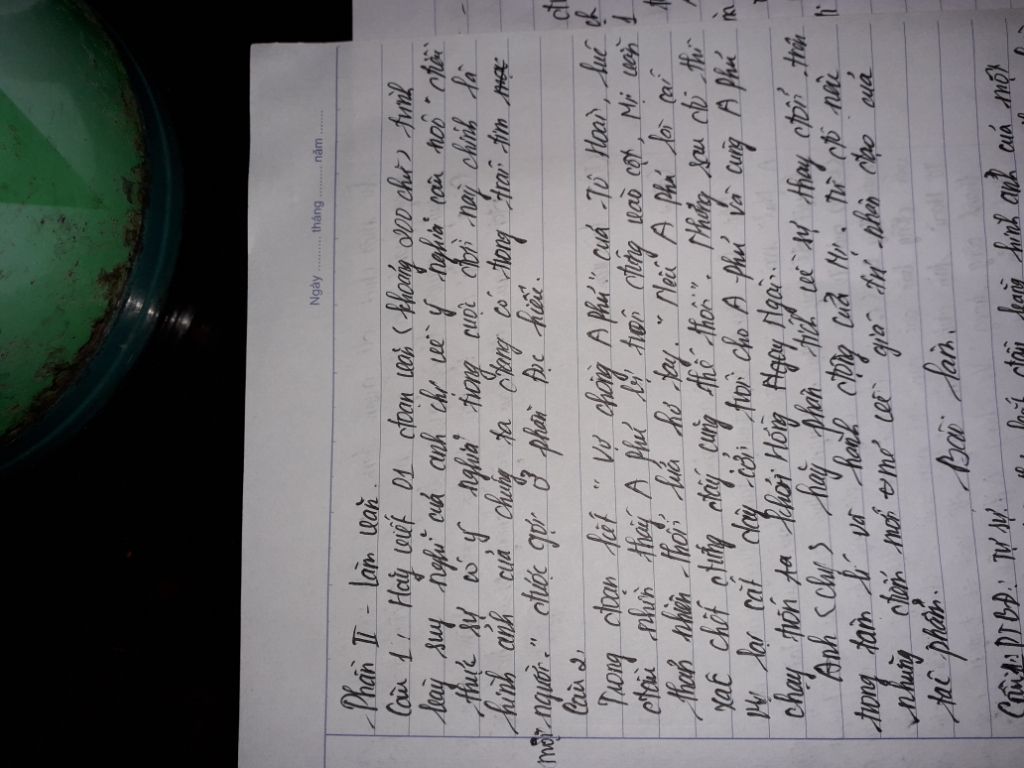 Ngày ........ tháng ........ năm ........
Phần II - Làm văn.
Câu 1: Hãy viết 01 đoạn văn (khoảng 200 chữ) trình
bày suy nghĩ của anh chị về ý nghĩa của nói "điều
thực sự có ý nghĩa trong cuộc đời này chính là
hình ảnh của chúng ta đọng có trong trái tim
mọi người." được gợi ý phần Đọc hiểu.
Câu 2.
Trong đoạn kết "Vợ chồng A Phủ" của Tô Hoài, lúc
đầu nhìn thấy A Phủ bị trói đứng vào cột, Mị vẫn
thản nhiên thổi lửa hơ tay. "Nếu A Phủ là cái
xác chết đứng đấy cũng thế thôi". Nhưng sau đó thì
Mị lại cắt dây cởi trói cho A Phủ và cùng A Phủ
chạy trốn ra khỏi Hồng Ngài.
Anh (chị) hãy phân tích về sự thay đổi trên
trong tâm lí và hành động của Mị. Từ đó nêu
những đánh mới mẻ về giá trị nhân đạo của
tác phẩm.
Bài làm.
Câu 1: PTBĐ: Tự sự
hình ảnh của một